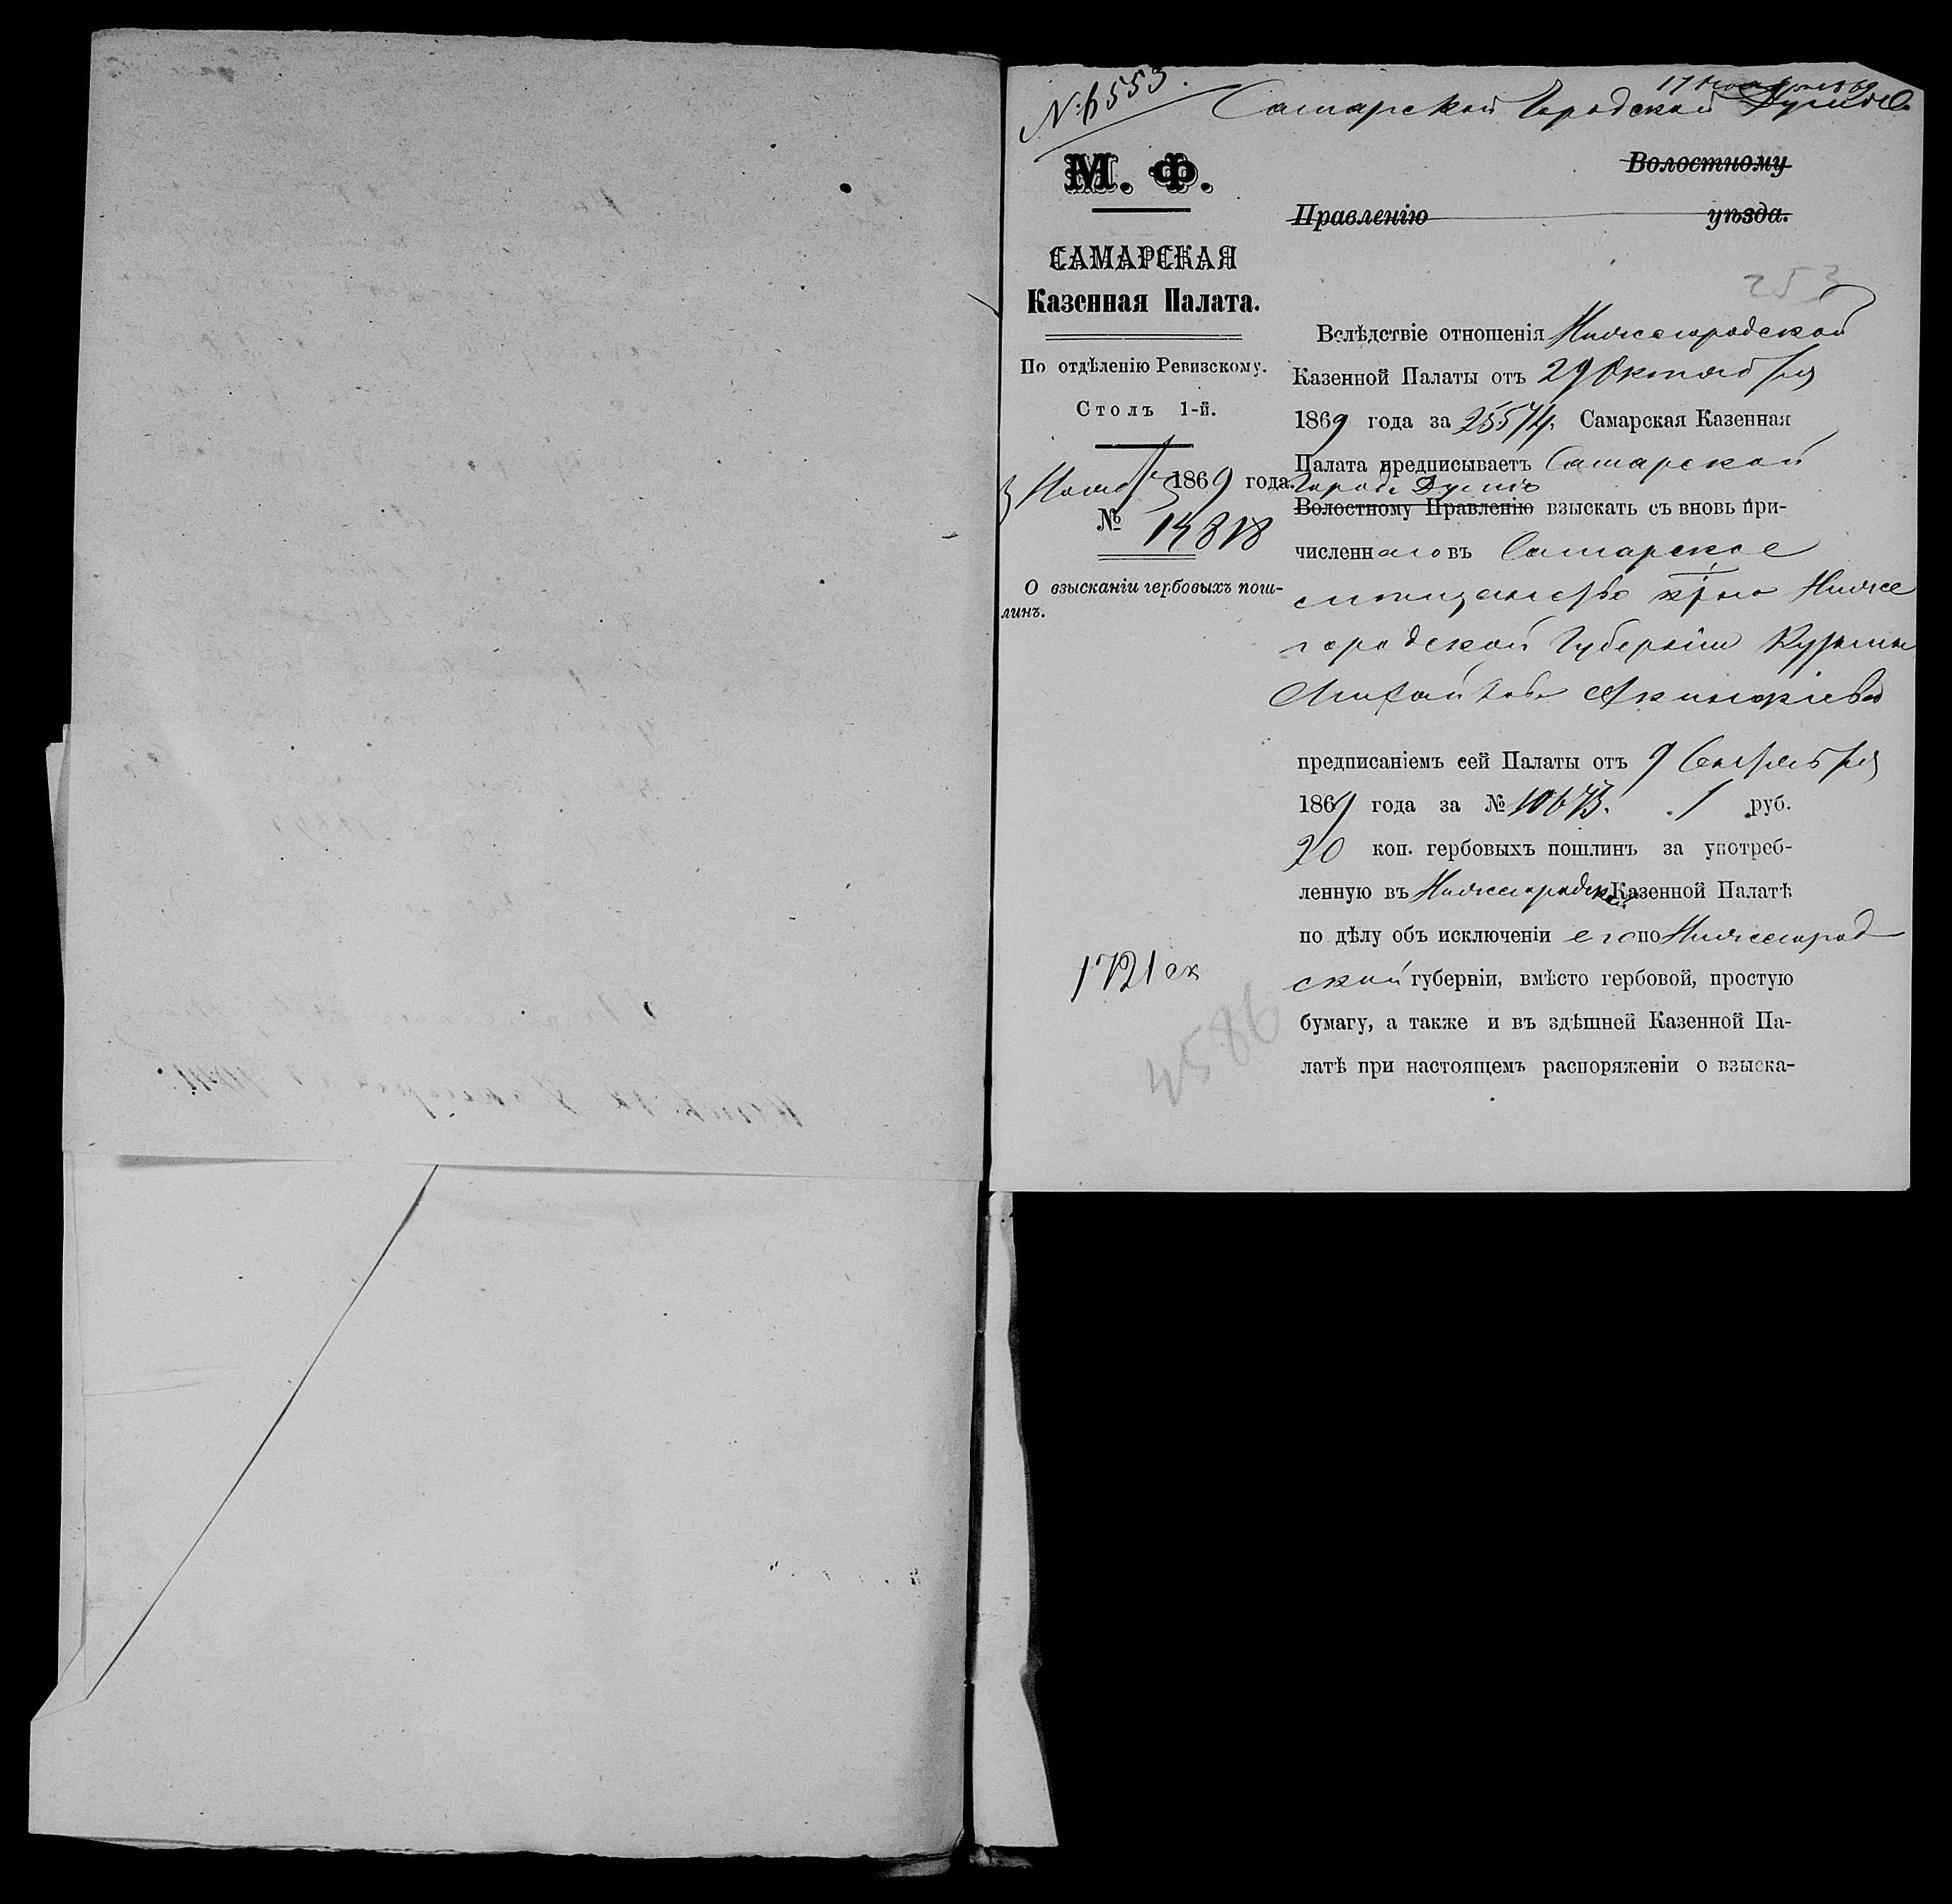 № 6553.
17 Ноября 69
Самарской Городской Думѣ
М. Ф.
САМАРСКАЯ
Казенная Палата.
По отдѣленію Ревизскому.
Столъ 1-й.
3 Ноября 1869 года.
№ 14818
О взысканіи гербовыхъ пош-
линъ.
1721 ск
4586
Волостному
Правленію уѣзда.
253
Вслѣдствіе отношенія Нижегородской
Казенной Палаты отъ 29 Октября
1869 года за 25574, Самарская Казенная
Палата предписываетъ Самарской
Город. Думѣ
Волостному Правленію взыскать съ вновь при-
численнаго въ Самарское
мѣщанство кр-на Ниже
городской Губерніи Кузьмы
Михайлова
предписаніемъ сей Палаты отъ 9 Сентября
1869 года за № 10673. 1 руб.
20 коп. гербовыхъ пошлинъ за употреб-
ленную въ Нижегородской Казенной Палатѣ
по дѣлу объ исключеніи его по Нижегород
ской губерніи, вмѣсто гербовой, простую
бумагу, а также и въ здѣшней Казенной Па-
латѣ при настоящемъ распоряженіи о взыска-